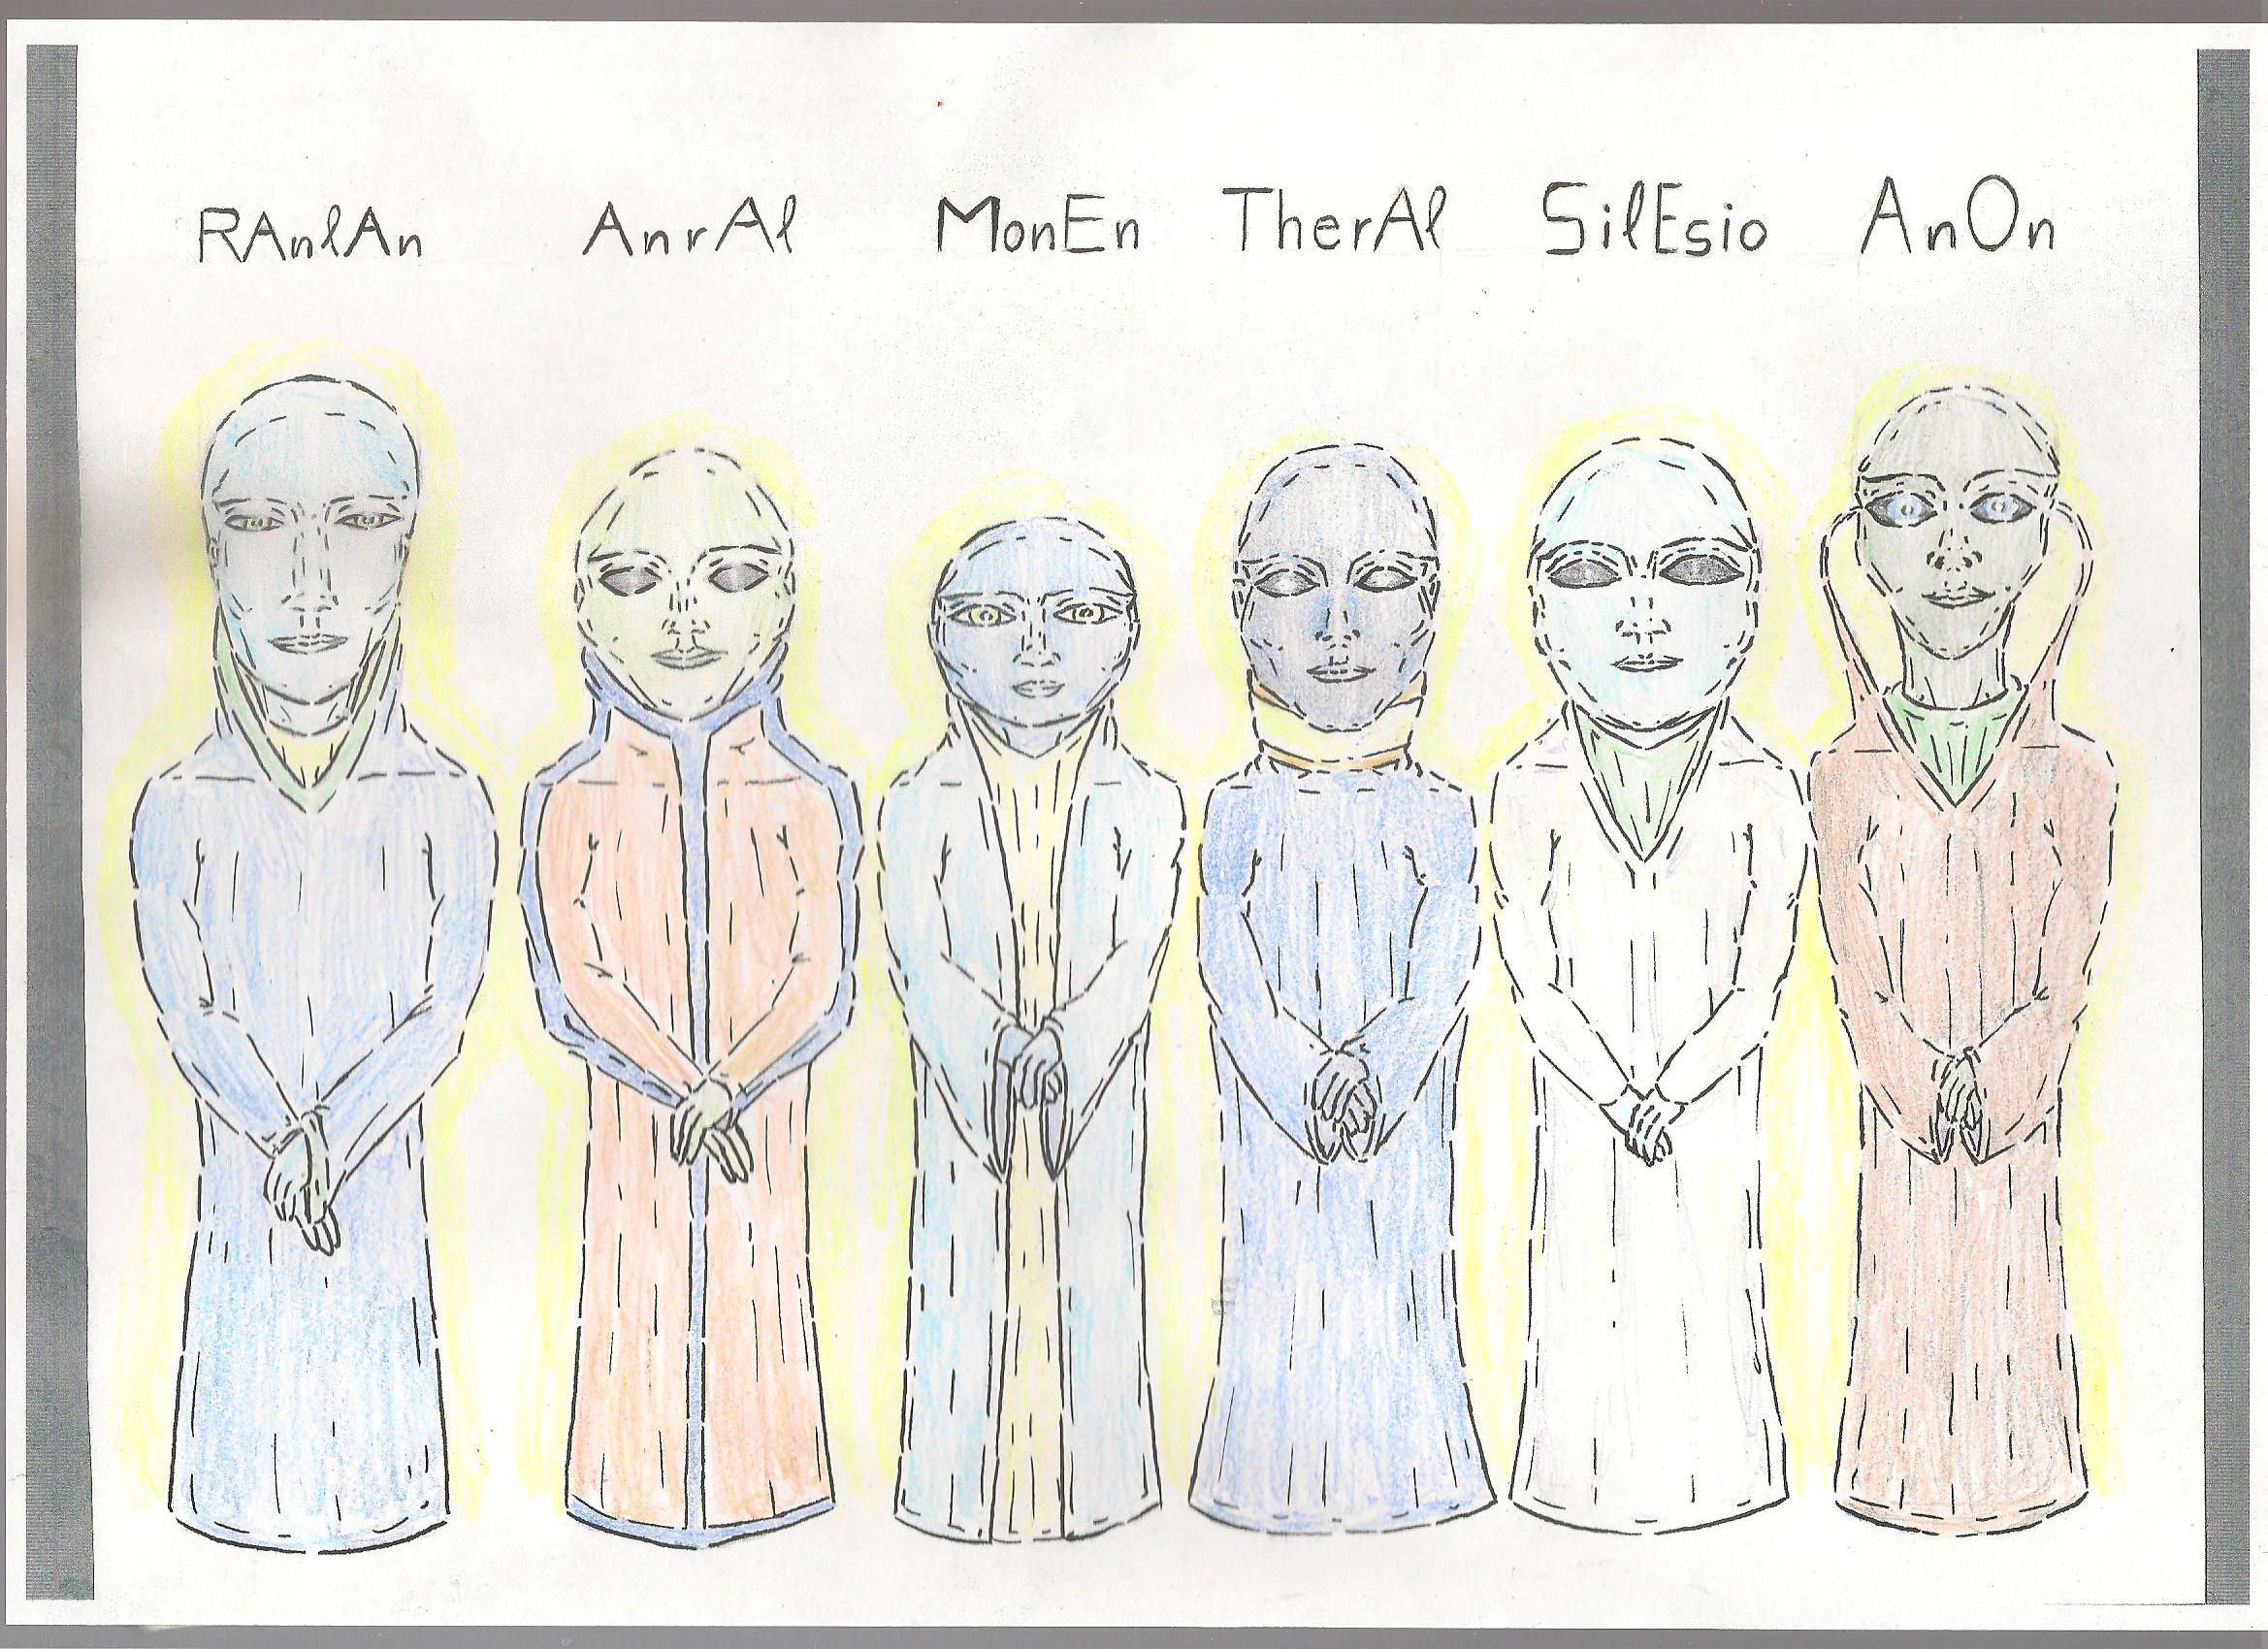 RAnlAn AnrAl MonEn TherAl SilEsio AnOn